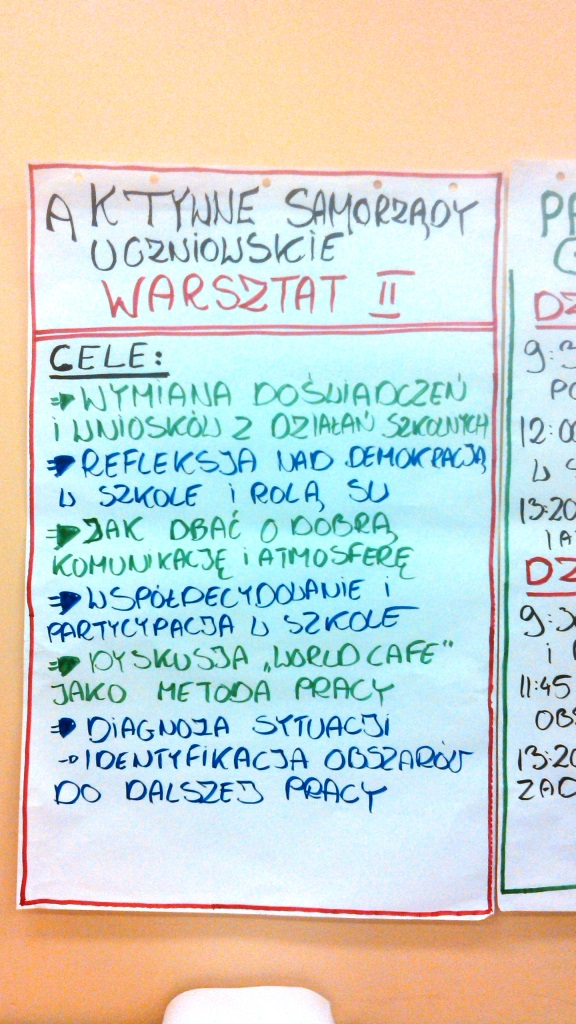 AKTYWNE SAMORZĄDY
UCZNIOWSKIE
WARSZTAT II
CELE:
⇒ WYMIANA DOŚWIADCZEŃ
I WNIOSKÓW Z DZIAŁAŃ SZKOLNYCH
⇒ REFLEKSJA NAD DEMOKRACJĄ
W SZKOLE I ROLĄ SU
⇒ JAK DBAĆ O DOBRĄ
KOMUNIKACJĘ I ATMOSFERĘ
⇒ WSPÓŁDECYDOWANIE I
PARTYCYPACJA W SZKOLE
⇒ DYSKUSJA „WORLD CAFE"
JAKO METODA PRACY
⇒ DIAGNOZA SYTUACJI
→ IDENTYFIKACJA OBSZARÓW
DO DALSZEJ PRACY
9:3
12:00
13:20
9:30
i
11:45
OBS
13:20
ZAC